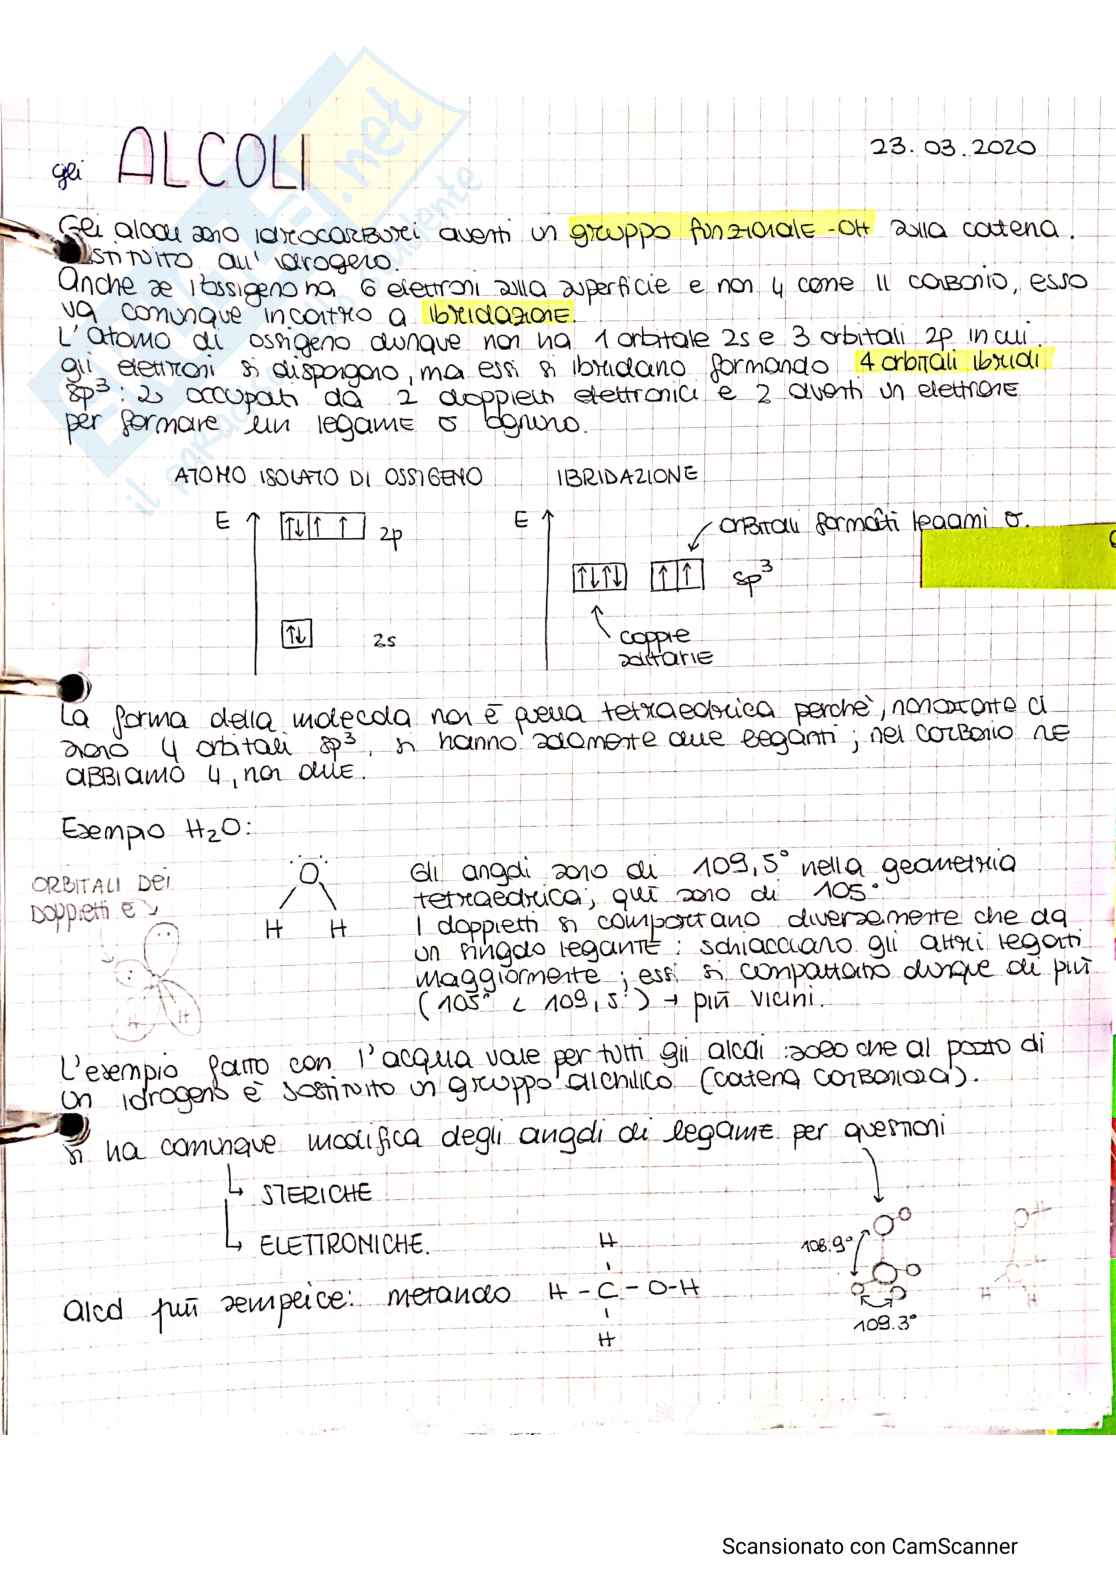 gli ALCOLI
23.03.2020
Gli alcoli sono idrocarburi aventi un gruppo funzionale -OH sulla catena.
sostituito all'idrogeno.
Anche se l'ossigeno ha 6 elettroni sulla superficie e non 4 come il carbonio, esso
va comunque incontro a ibridazione.
L'atomo di ossigeno dunque non ha 1 orbitale 2s e 3 orbitali 2p in cui
gli elettroni si dispongono, ma essi si ibridano formando 4 orbitali ibridi
sp³: 2 occupati da 2 doppietti elettronici e 2 aventi un elettrone
per formare un legame σ ognuno.
ATOMO ISOLATO DI OSSIGENO
IBRIDAZIONE
E ↑↓ ↑ ↑ 2p
↑↓ 2s
E orbitali formanti legami σ.
↑↓ ↑↓ ↑ ↑ sp³
coppie
solitarie
La forma della molecola non è quella tetraedrica perchè, nonostante ci
siano 4 orbitali sp³, si hanno solamente due leganti; nel carbonio ne
abbiamo 4, non due.
Esempio H₂O:
ORBITALI DEI
DOPPietti e⁻
O
H H
H H
Gli angoli sono di 109,5° nella geometria
tetraedrica; qui sono di 105°
I doppietti si comportano diversamente che da
un singolo legante: schiacciano gli altri leganti
maggiormente; essi si compattano dunque di più
(105° < 109,5°) → più vicini.
L'esempio fatto con l'acqua vale per tutti gli alcoli: solo che al posto di
un idrogeno è sostituito un gruppo alchilico (catena carboniosa).
Si ha comunque modifica degli angoli di legame per questioni
↳ STERICHE
↳ ELETTRONICHE.
Alcol più semplice: metanolo
H
H - C - O - H
H
108.9°
109.3°
OH
H H
Scansionato con CamScanner